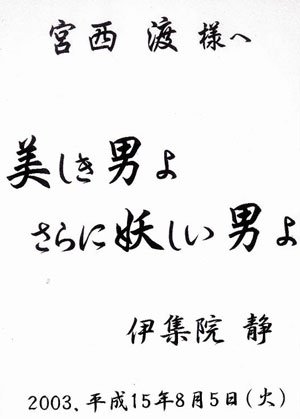 宮西 渡 様へ
美しき男よ
さらに妖しい男よ
伊集院 静
2003、平成15年8月5日(火)